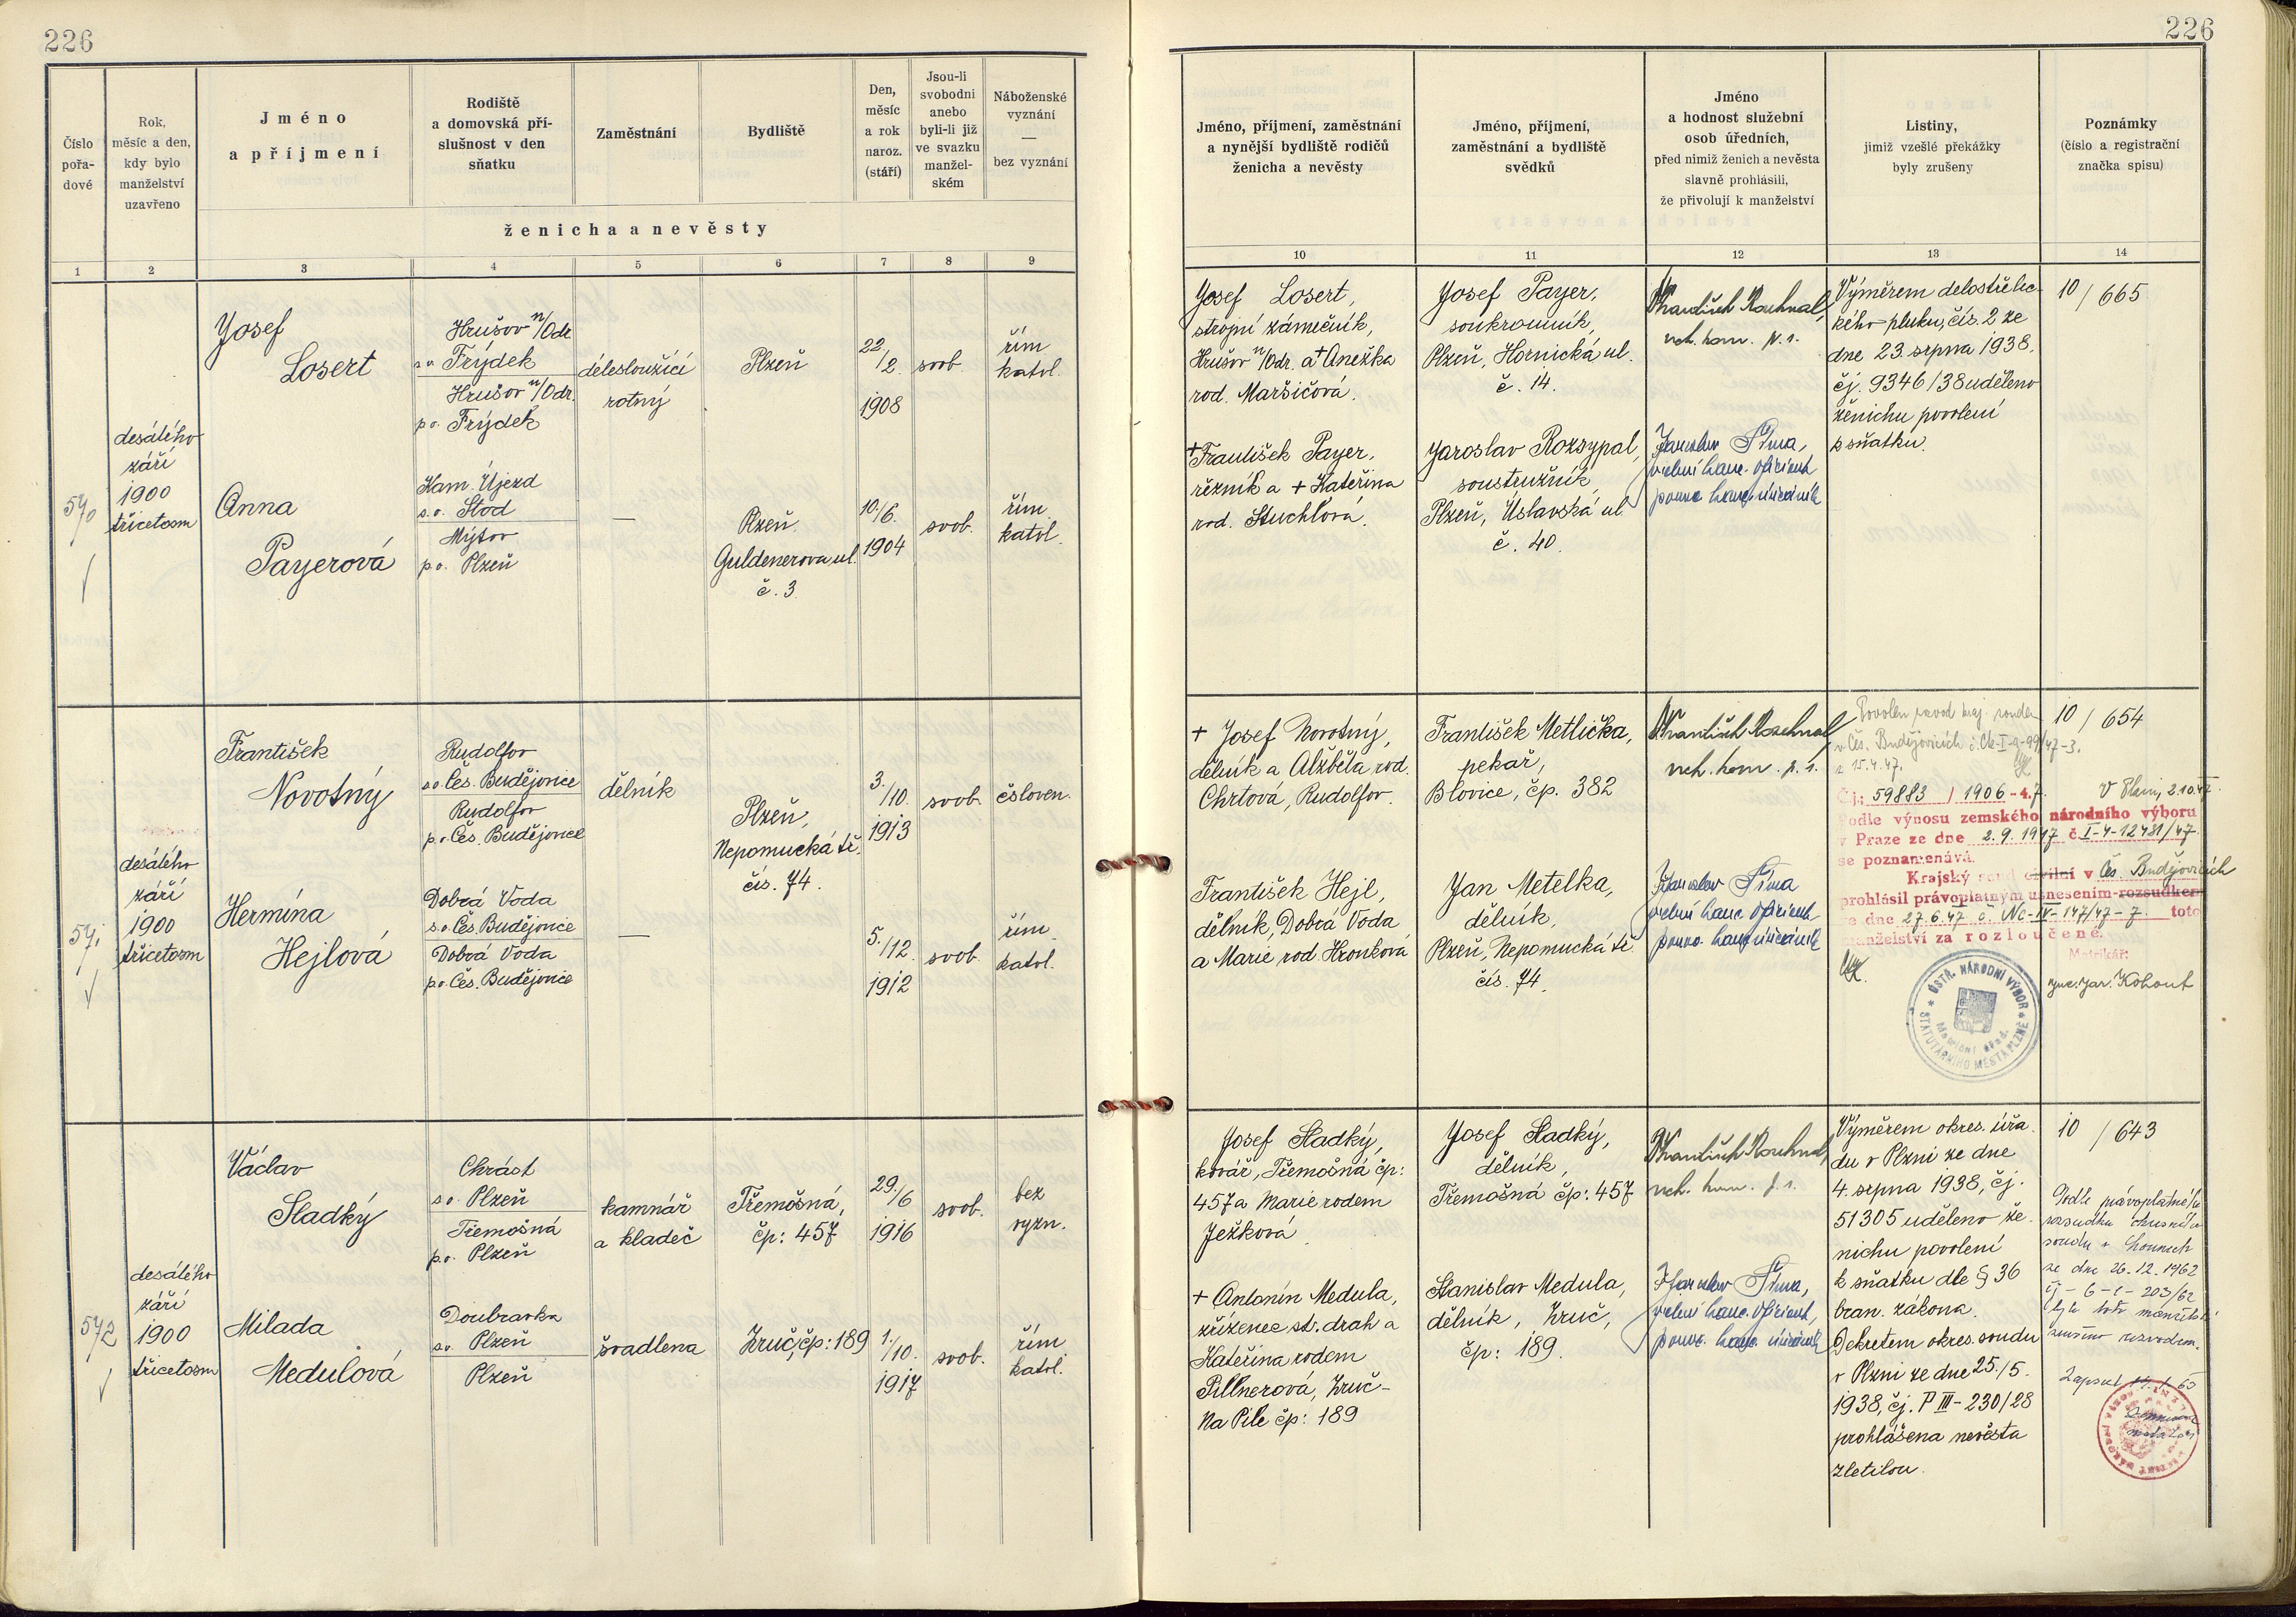 226
226
Číslo
pořa-
dové
Rok,
měsíc a den,
kdy bylo
manželství
uzavřeno
Jméno
a příjmení
Rodiště
a domovská pří-
slušnost v den
sňatku
Zaměstnání
Bydliště
Den,
měsíc
a rok
naroz.
(stáří)
Jsou-li
svobodni
anebo
byli-li již
ve svazku
manžel-
ském
Náboženské
vyznání
—
bez vyznání
ženicha a nevěsty
1 2 3 4 5 6 7 8 9
Jméno, příjmení, zaměstnání
a nynější bydliště rodičů
ženicha a nevěsty
Jméno, příjmení,
zaměstnání a bydliště
svědků
Jméno
a hodnost služební
osob úředních,
před nimiž ženich a nevěsta
slavně prohlásili,
že přivolují k manželství
Listiny,
jimiž vzešlé překážky
byly zrušeny
Poznámky
(číslo a registrační
značka spisu)
10 11 12 13 14
570
desátého
září
1900
třicetosm
Josef
Losert
Hrušov n/Odr.
s.o. Frýdek
Hrušov n/Odr.
p.o. Frýdek
délesloužící
rotný
Plzeň
22./2.
1908
svob.
řím.
katol.
Anna
Payerová
Ham. Újezd
s.o. Stod
Mýtov
p.o. Plzeň
—
Plzeň
Guldenerova ul.
č. 3.
10./6.
1904
svob.
řím.
katol.
Josef Losert,
strojní zámečník,
Hrušov n/Odr. a + Anežka
rod. Maršičová.
+ František Payer,
řezník a + Kateřina
rod. Stuchlová.
Josef Payer,
soukromník,
Plzeň, Hornická ul.
č. 14.
Jaroslav Rozsypal,
soustružník,
Plzeň, Úslavská ul.
č. 40.
vrch. kom. p. s.
Jaroslav Šíma,
Výměrem dělostřelec-
kého pluku, čís. 2 ze
dne 23. srpna 1938.
čj. 9346/38 uděleno
ženichu povolení
k sňatku.
10/665
571
desátého
září
1900
třicetosm
František
Novotný
Rudolfov
s.o. Čes. Budějovice
Rudolfov
p.o. Čes. Budějovice
dělník
Plzeň,
Nepomucká tř.
čís. 74.
3./10.
1913
svob.
čsloven.
Hermína
Hejlová
Dobrá Voda
s.o. Čes. Budějovice
Dobrá Voda
p.o. Čes. Budějovice
—
5./12.
1912
svob.
řím.
katol.
+ Josef Novotný,
dělník a Alžběta rod.
Chrtová, Rudolfov.
František Hejl,
dělník, Dobrá Voda
a Marie rod. Hronková
František Metlička,
pekař,
Blovice, čp. 382
Jan Metelka,
dělník,
Plzeň, Nepomucká tř.
čís. 74.
vrch. kom. p. s.
Jaroslav Šíma
Povolen rozvod kraj. soudem
v Čes. Budějovicích č. Ck-I-a-99/47-3.
z 15.4.47.
10/654
Čj.: 59883 / 1906-4.7.
V Plzni, 2.10.47.
Podle výnosu zemského národního výboru
v Praze ze dne 2.9.1947 č. I-4-12481/47
se poznamenává.
Krajský soud civilní v Čes. Budějovicích
prohlásil právoplatným usnesením rozsudkem
ze dne 27.6.47 č. Nc-IV-147/47-7. toto
manželství za rozloučené.
Matrikář:
Jar. Kohout
ÚSTŘ. NÁRODNÍ VÝBOR
STATUTÁRNÍHO MĚSTA PLZNĚ
Matriční úřad.
572
desátého
září
1900
třicetosm
Václav
Sladký
Chrást
s.o. Plzeň
Třemošná
p.o. Plzeň
kamnář
a kladeč
Třemošná,
čp: 457
29./6
1916
svob.
bez
vyzn.
Milada
Medulová
Doubravka
s.o. Plzeň
Plzeň
švadlena
Zruč, čp: 189
1./10.
1917
svob.
řím.
katol.
Josef Sladký,
kovář, Třemošná čp:
457 a Marie rodem
Ježková.
+ Antonín Medula,
zřízenec st. drah a
Kateřina rodem
Pillnerová, Zruč-
Na Pile čp: 189
Josef Sladký,
dělník,
Třemošná čp: 457
Stanislav Medula,
dělník, Zruč,
čp: 189.
vrch. kom. p. s.
Jaroslav Šíma,
Výměrem okres. úřa-
du v Plzni ze dne
4. srpna 1938, čj.
51305 uděleno že-
nichu povolení
k sňatku dle § 36
bran. zákona.
Dekretem okres. soudu
v Plzni ze dne 25./5.
1938, čj. P III-230/28
prohlášena nevěsta
zletilou.
10/643
Podle právoplatného
rozsudku okresního
soudu v Lounech
ze dne 26.12.1962
čj-6-C-203/62
bylo toto manželství
zrušeno rozvodem.